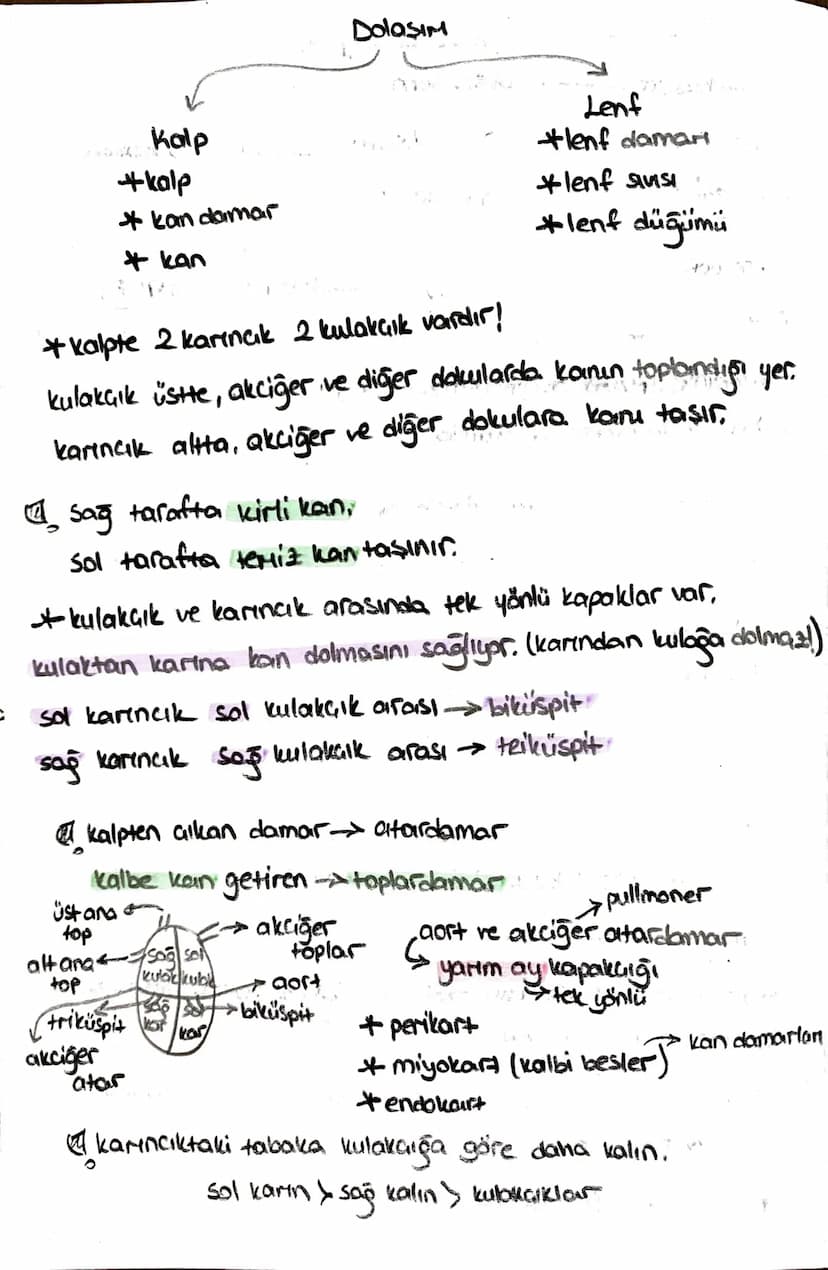 Dolaşım
Kalp
*kalp
* kan damar
* kan
Lenf
*lenf damarı
*lenf sıvısı
*lenf düğümü
*kalpte 2 karıncık 2 kulakcık vardır!
kulakcık üstte, akciğer ve diğer dokularda kanın toplandığı yer.
karıncık altta, akciğer ve diğer dokulara kanı taşır.
sağ tarafta kirli kan,
sol tarafta temiz kan taşınır.
*kulakçık ve karıncık arasında tek yönlü kapaklar var,
kulaktan karına kan dolmasını sağlıyor. (karından kulağa dolmaz!)
sol karıncık sol kulakçık arası → biküspit
sağ karıncık sağ kulakcık arası → teiküspit
kalpten cıkan damar → atardamar
kalbe kan getiren → toplardamar
üst ana top
alt ana top
triküspit
akciğer atar
sağ kulak
sol kulak
sağ kar
sol kar
akciğer toplar
aort
biküspit
pullmoner
aort ve akciğer atardamar
yarım ay kapakcığı
tek yönlü
* perikart
* miyokart (kalbi besler) → kan damarları
*endokart
karıncıktaki tabaka kulakcığa göre daha kalın.
sol karın > sağ kalın > kulakcıklar